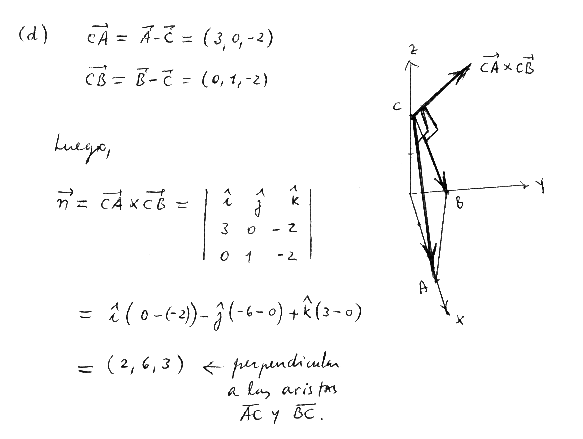 (d) →CA = →A - →C = (3, 0, -2)
→CB = →B - →C = (0, 1, -2)
Luego,
→n = →CA × →CB = | î ĵ k̂ |
| 3 0 -2 |
| 0 1 -2 |
= î (0-(-2)) - ĵ (-6-0) + k̂ (3-0)
= (2, 6, 3) ← perpendicular
a las aristas
A̅C̅ y B̅C̅.
Z
→CA × →CB
C
Y
B
A
X